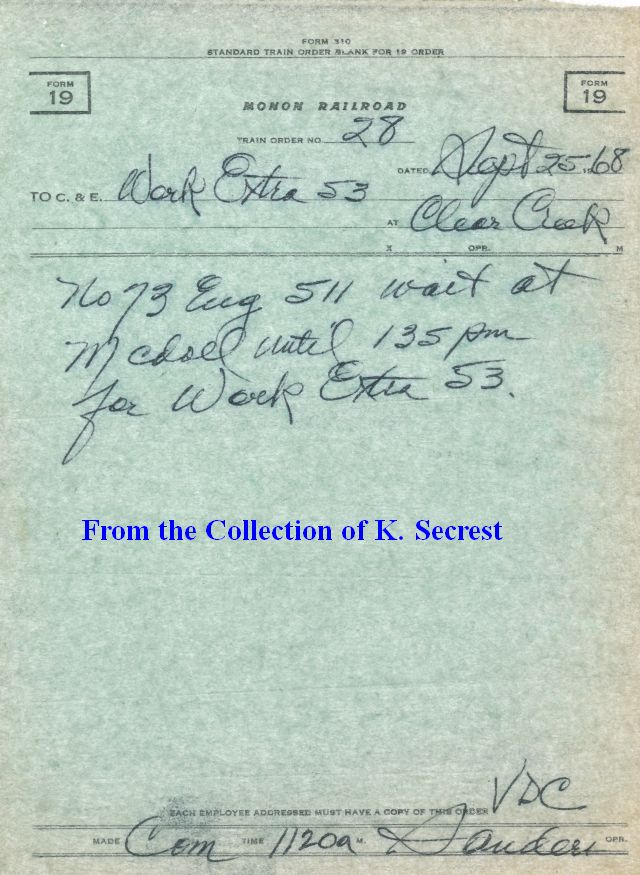 FORM 310
STANDARD TRAIN ORDER BLANK FOR 19 ORDER
FORM 19
FORM 19
MONON RAILROAD
TRAIN ORDER NO. 28
DATED Sept 25 1968
TO C. & E. Work Extra 53
AT Clear Creek
X OPR. M
No 73 Eng 511 wait at
Mcdoel until 135 pm
for Work Extra 53.
From the Collection of K. Secrest
VDC
EACH EMPLOYEE ADDRESSED MUST HAVE A COPY OF THIS ORDER
MADE Com TIME 1120a M. Sanders OPR.